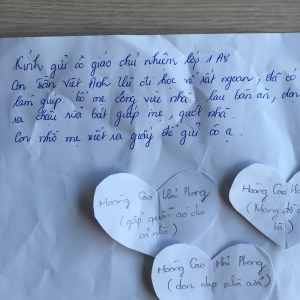 Kính gửi cô giáo chủ nhiệm lớp 1A8
Con Trần Việt Anh đi học về rất ngoan, đã có
làm giúp bố mẹ công việc nhà lau bàn ăn, dọn
rửa bát giúp mẹ, quét nhà.
Con nhờ mẹ viết ra giấy để gửi cô ạ.
Hoàng Cao Hải Phong
(gấp quần áo cho
cả nhà)
Hoàng Cao Hả
(Mang đồ
Hoàng Cao Hải Phong
(dọn dẹp nhà cửa)